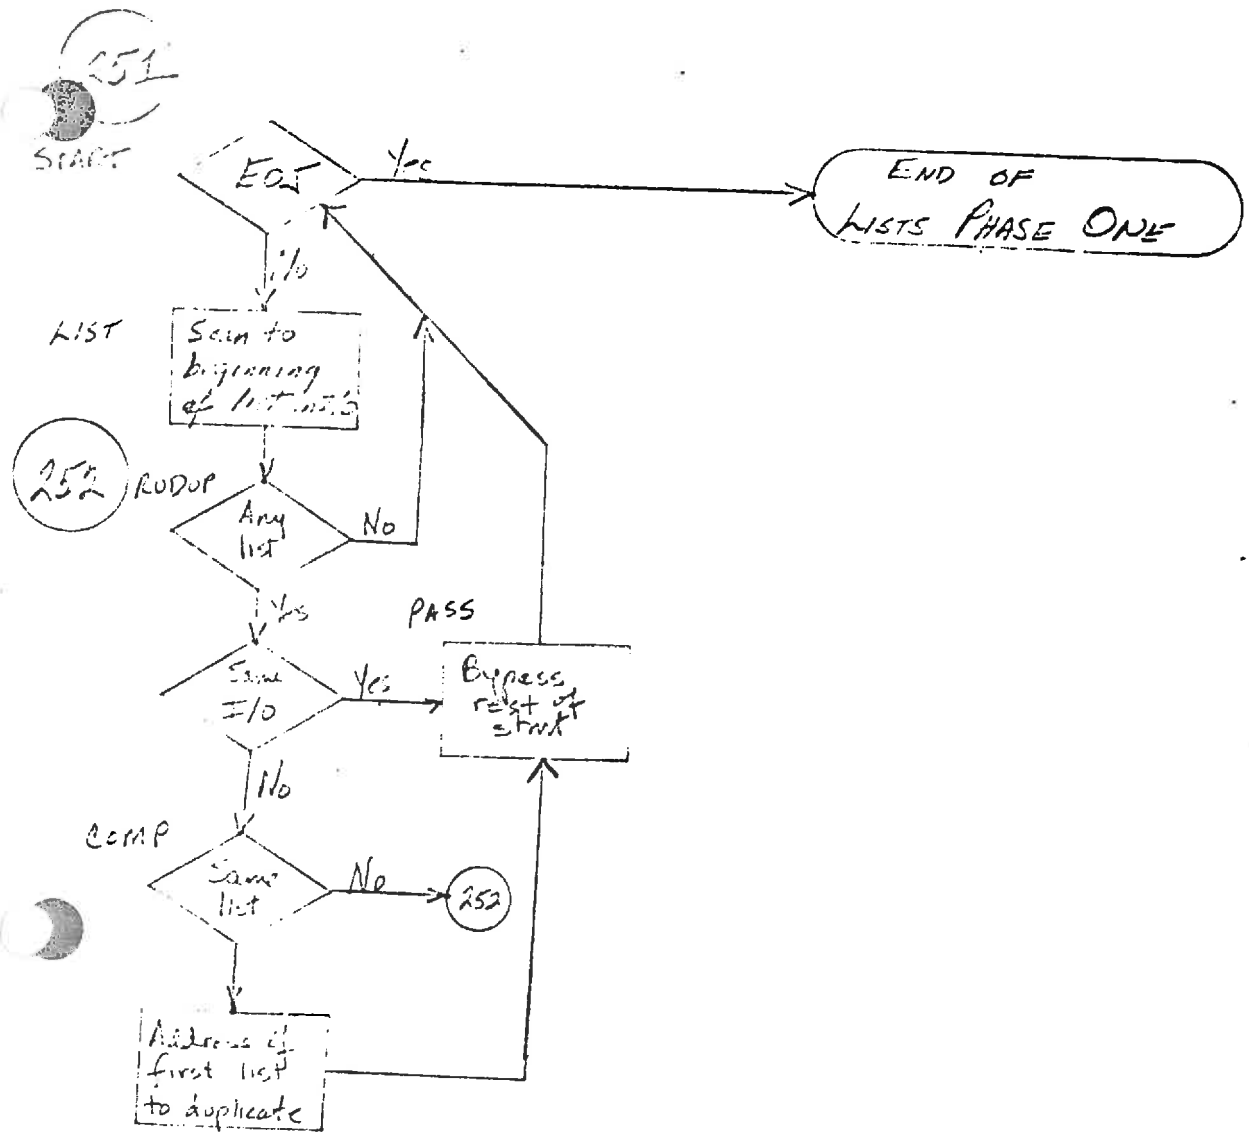 251
START
EOJ
Yes
END OF
LISTS PHASE ONE
No
LIST
Scan to
beginning
of list
252
RUDUP
Any
list
No
Yes
PASS
Same
I/O
Yes
Bypass
rest of
stmt
No
COMP
Same
list
No
252
Address of
first list
to duplicate